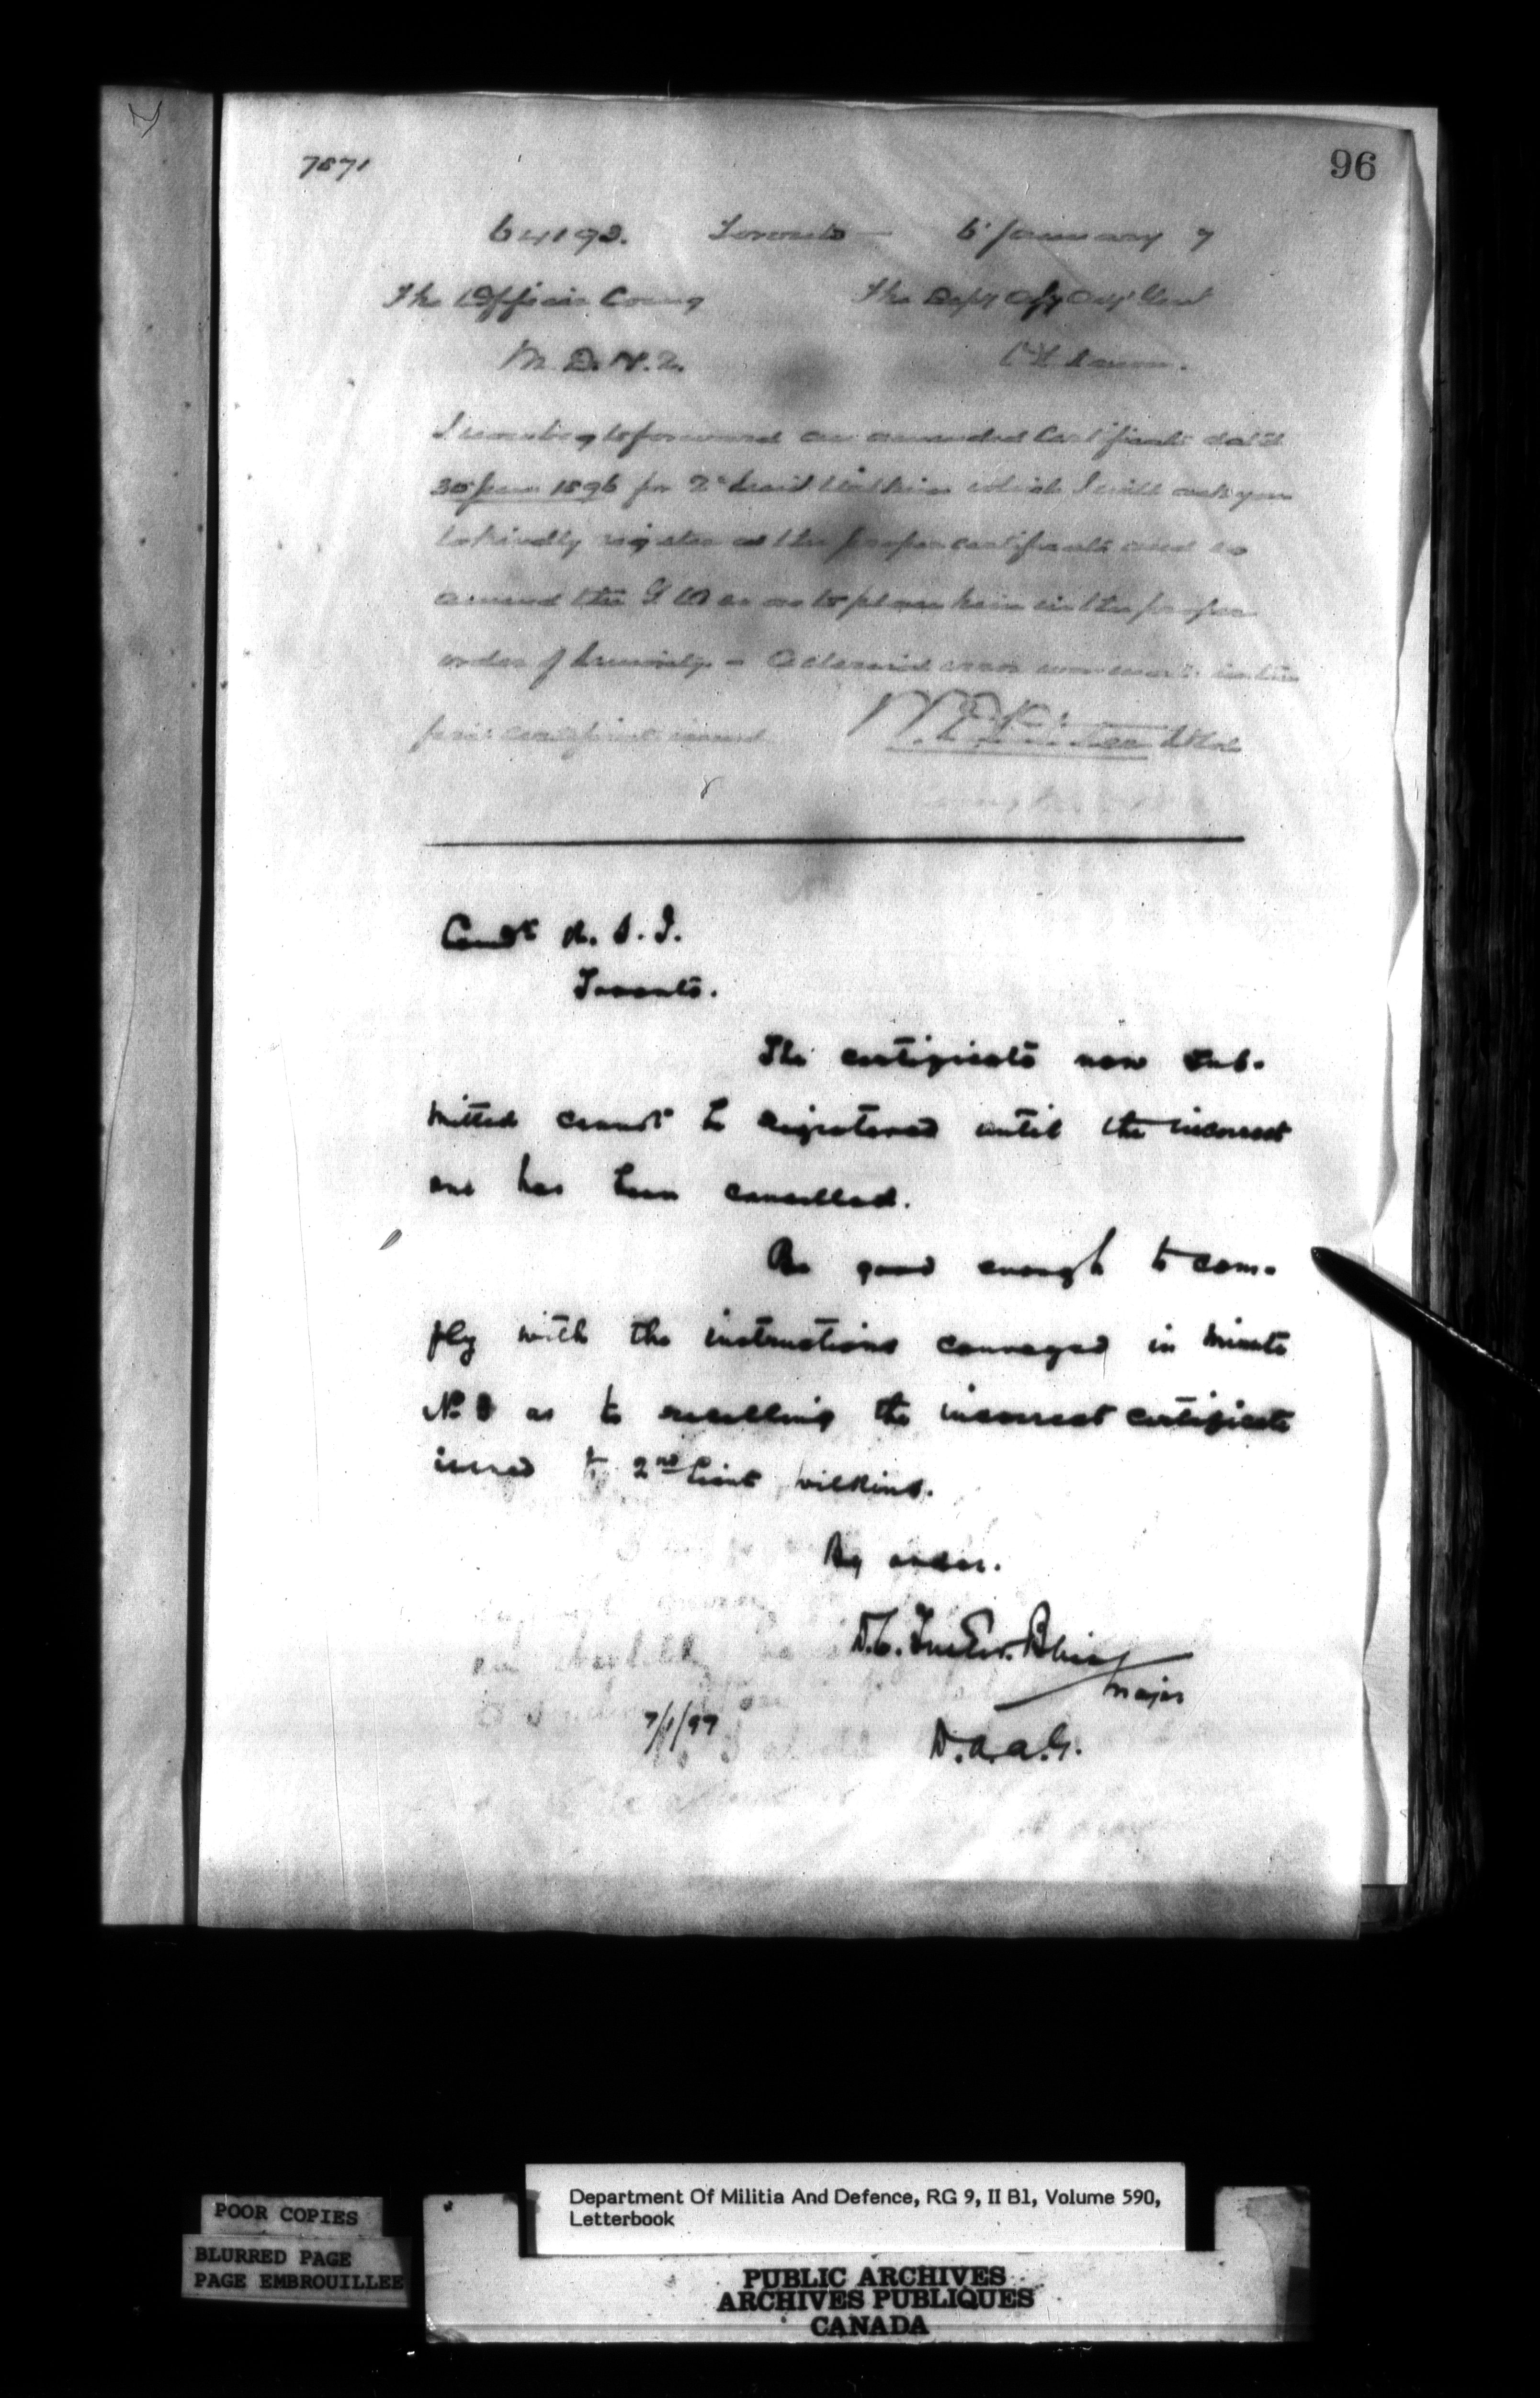 96
7871
64193. Toronto — 6 January 7
The Officer Comg The Dept Adjt Genl
M. D. N. 2. Ottawa.
I now beg to forward an amended Certificate dated
30 June 1896 for 2d Lieut Wilkins which I will ask you
to kindly register as the proper certificate and to
amend the G.O. so as to place him in the proper
order of Seniority - A clerical error was made in the
certificate issued
Comdt R. S. I.
Toronto.
The certificate now sub-
mitted cannot be registered until the incorrect
one has been cancelled.
Be good enough to com-
ply with the instructions conveyed in minute
No as to recalling the incorrect certificate
issued to 2nd Lieut Wilkins.
By order.
Major
7/1/97
D. A. A. G.
POOR COPIES
BLURRED PAGE
PAGE EMBROUILLEE
Department Of Militia And Defence, RG 9, II B1, Volume 590,
Letterbook
PUBLIC ARCHIVES
ARCHIVES PUBLIQUES
CANADA